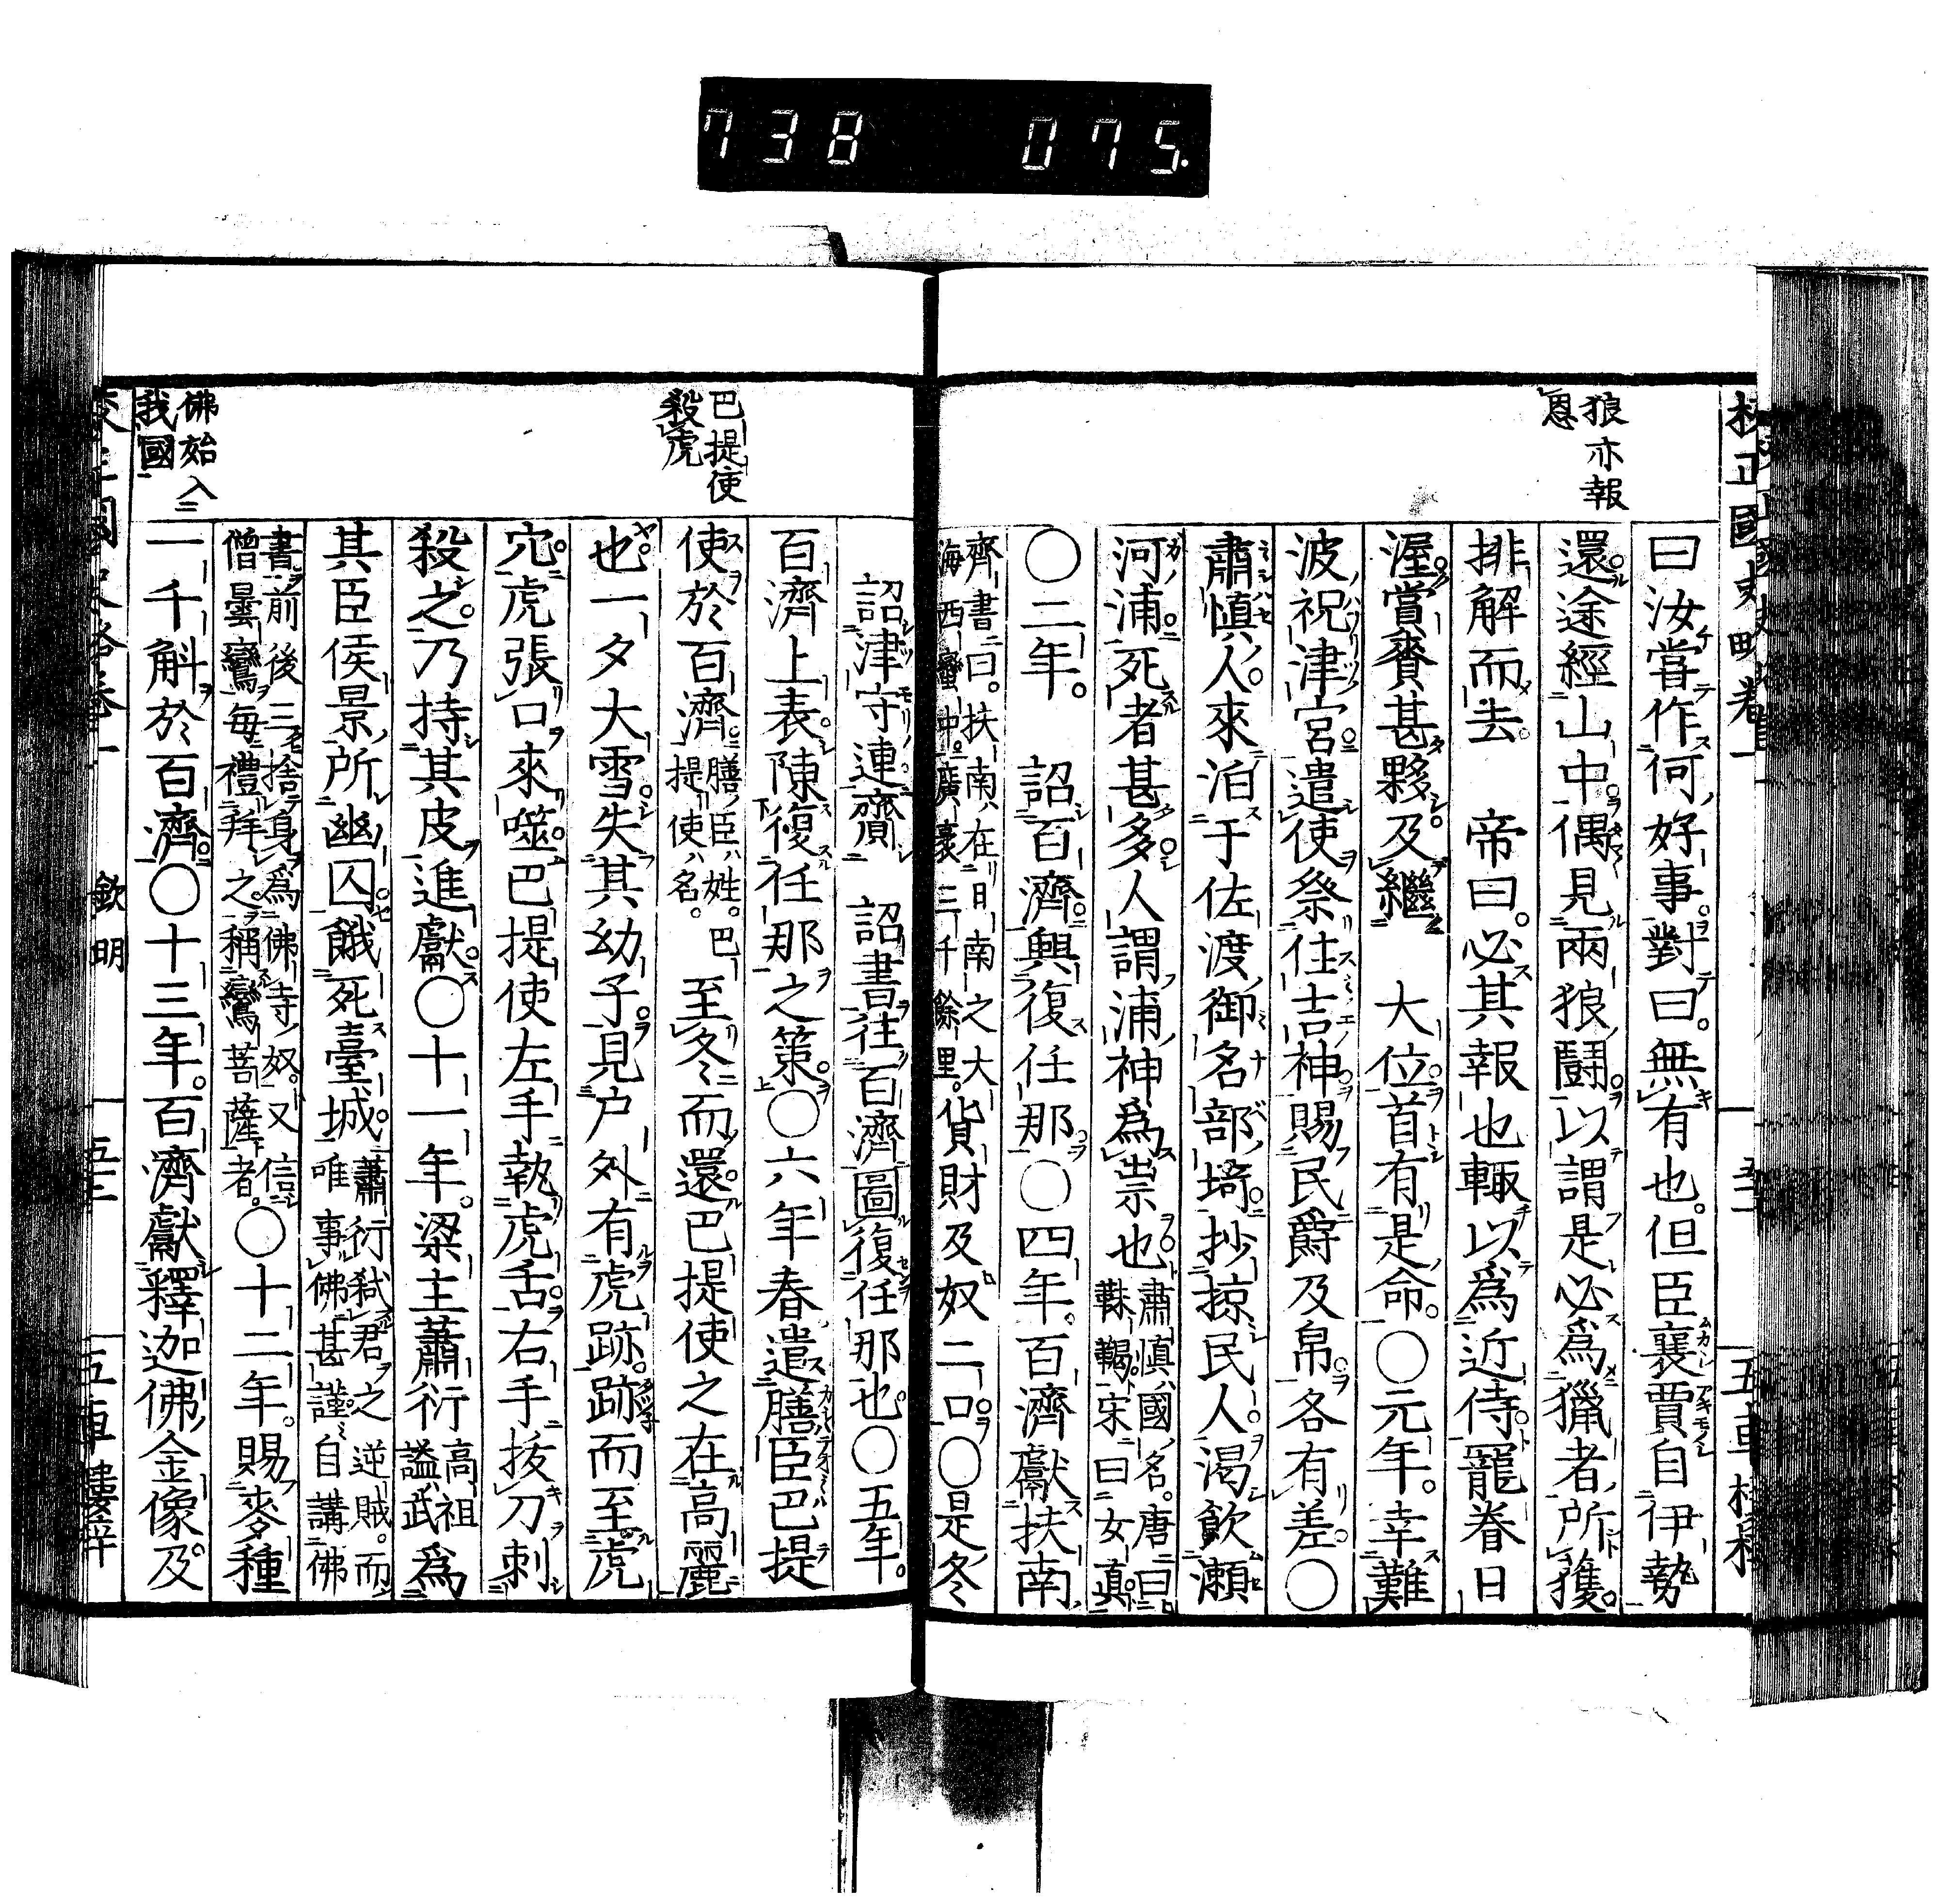 738 075.
校正國史略卷一 五車樓梓
狼亦報
恩
曰汝嘗作何好事對曰。無有也。但臣襄賈自伊勢
還途經山中偶見兩狼鬪以謂是必爲獵者所獲
排解而去 帝曰。必其報也輙以爲近侍寵眷日
渥賞賚甚夥及繼 大位首有是命。〇元年。幸難
波祝津宮遣使祭住吉神賜民爵及帛各有差〇
肅愼人來泊于佐渡御名部埼抄掠民人渴飮瀬
河浦死者甚多人謂浦神爲祟也肅愼國名。唐曰靺鞨宋曰女眞
〇二年。 詔百濟興復任那〇四年。百濟獻扶南
齊書曰。扶南在日南之大海西蠻中廣袤三千餘里。貨財及奴二口〇是冬
巴提使
殺虎
詔津守連齎 詔書往百濟圖復任那也〇五年。
百濟上表陳復任那之策〇六年春遣膳臣巴提
使於百濟膳臣姓。巴提使名。至冬而還巴提使之在高麗
也一夕大雪失其幼子見户外有虎跡。跡而至虎
穴虎張口來噬巴提使左手執虎舌右手拔刀刺
殺之乃持其皮進獻〇十一年。梁主蕭衍高祖謚武爲
其臣侯景所幽囚餓死臺城蕭衍弑君之逆賊。而唯事佛甚謹自講佛
書前後三捨身爲佛寺奴。又信僧曇鸞每禮拜之稱鸞菩薩者。〇十二年。賜麥種
一千斛於百濟〇十三年。百濟獻釋迦佛金像及
佛始入
我國
卷一 欽明 五十二 五車樓梓